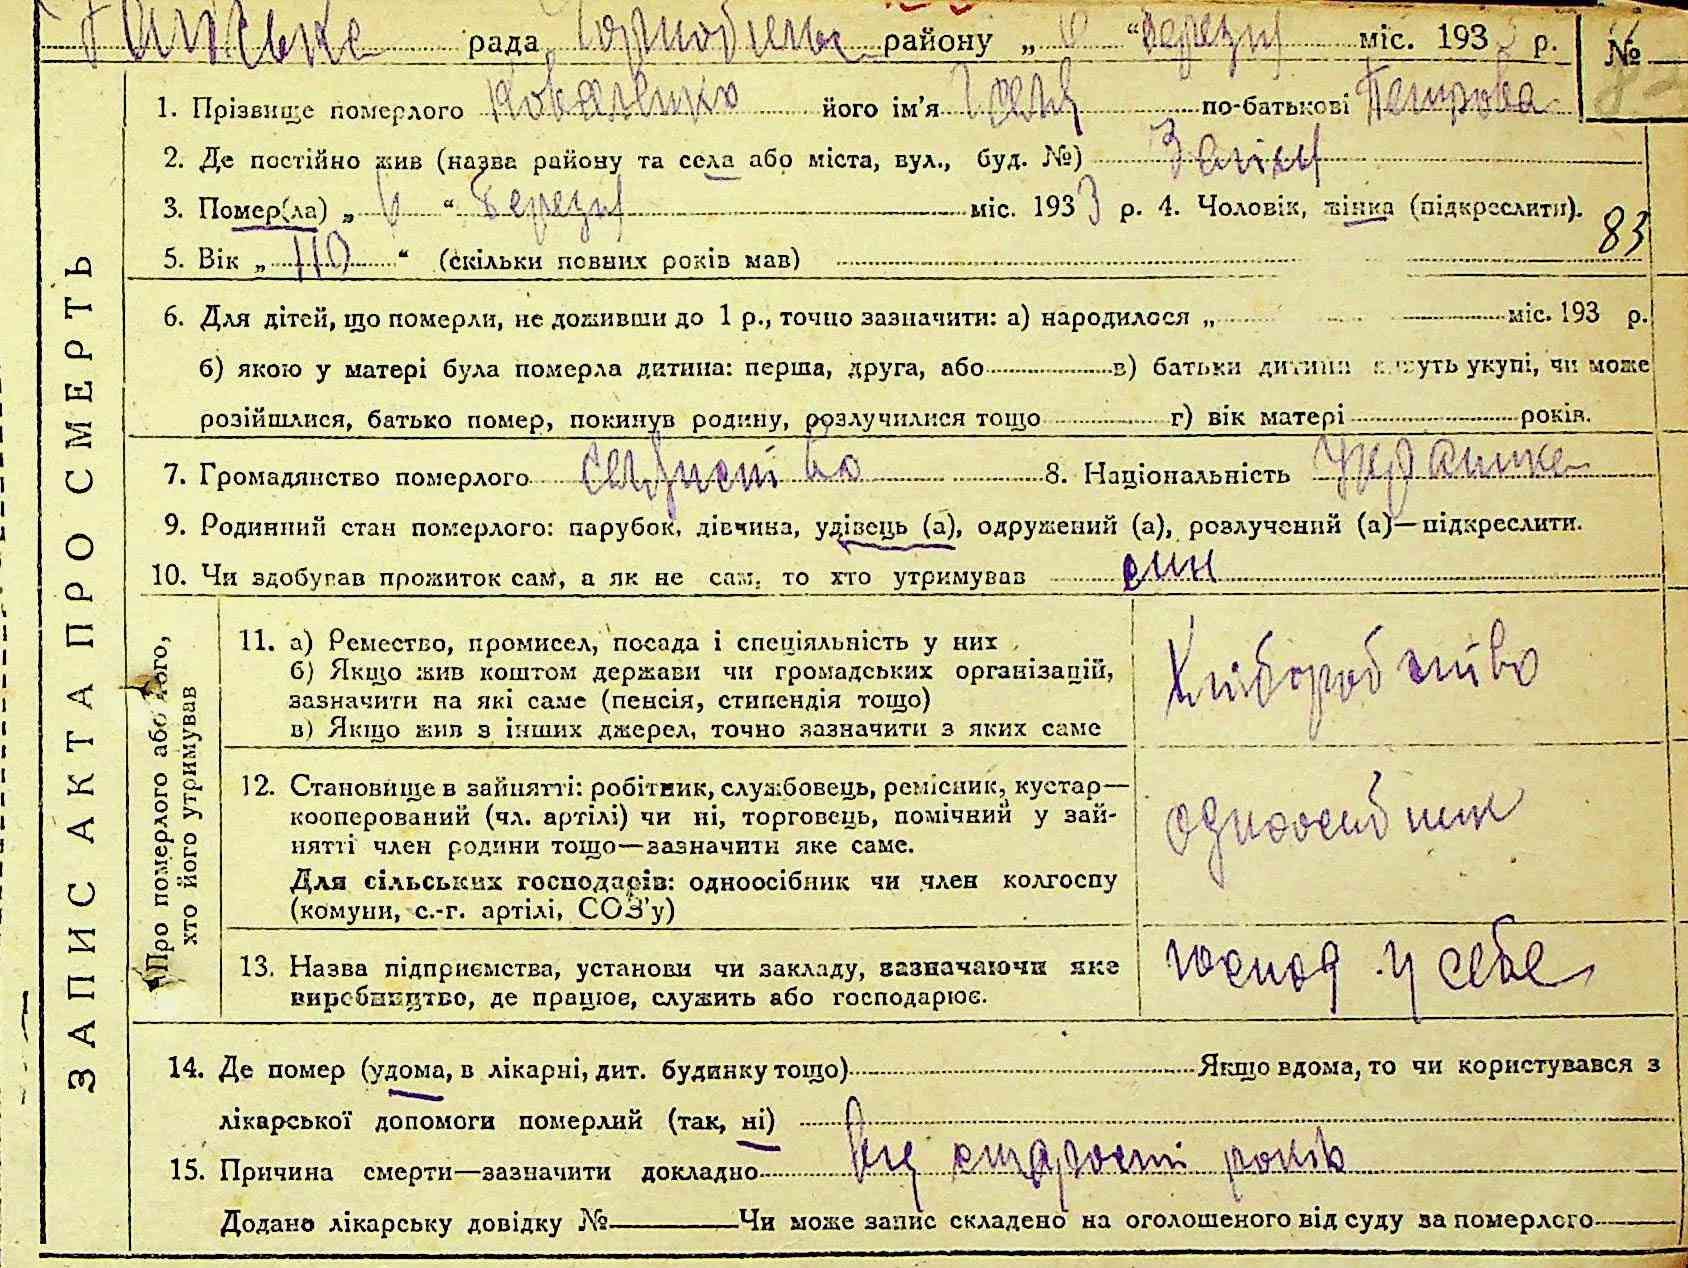 рада району „ “ березня міс. 193 р. №
1. Прізвище померлого Коваленко його ім'я по-батькові Петрова
2. Де постійно жив (назва району та села або міста, вул., буд. №)
3. Помер(ла) „ “ березня міс. 1933 р. 4. Чоловік, жінка (підкреслити).
5. Вік „110“ (скільки повних років мав) 83
6. Для дітей, що померли, не доживши до 1 р., точно зазначити: а) народилося „ міс. 193 р.
б) якою у матері була померла дитина: перша, друга, або в) батьки дитини живуть укупі, чи може
розійшлися, батько помер, покинув родину, розлучилися тощо г) вік матері років.
7. Громадянство померлого 8. Національність Українка
9. Родинний стан померлого: парубок, дівчина, удівець (а), одружений (а), розлучений (а)—підкреслити.
10. Чи здобував прожиток сам, а як не сам, то хто утримував син
11. а) Ремество, промисел, посада і спеціяльність у них
б) Якщо жив коштом держави чи громадських організацій,
зазначити на які саме (пенсія, стипендія тощо)
в) Якщо жив з інших джерел, точно зазначити з яких саме
Хліборобство
12. Становище в зайнятті: робітник, службовець, ремісник, кустар—
кооперований (чл. артілі) чи ні, торговець, помічний у зай-
нятті член родини тощо—зазначити яке саме.
Для сільських господарів: одноосібник чи член колгоспу
(комуни, с.-г. артілі, СОЗ'у)
одноосібник
13. Назва підприємства, установи чи закладу, зазначаючи яке
виробництво, де працює, служить або господарює.
у себе
14. Де помер (удома, в лікарні, дит. будинку тощо) Якщо вдома, то чи користувався з
лікарської допомоги померлий (так, ні)
15. Причина смерти—зазначити докладно Від старості років
Додано лікарську довідку № Чи може запис складено на оголошеного від суду за померлого
ЗАПИС АКТА ПРО СМЕРТЬ
Про померлого або того,
хто його утримував